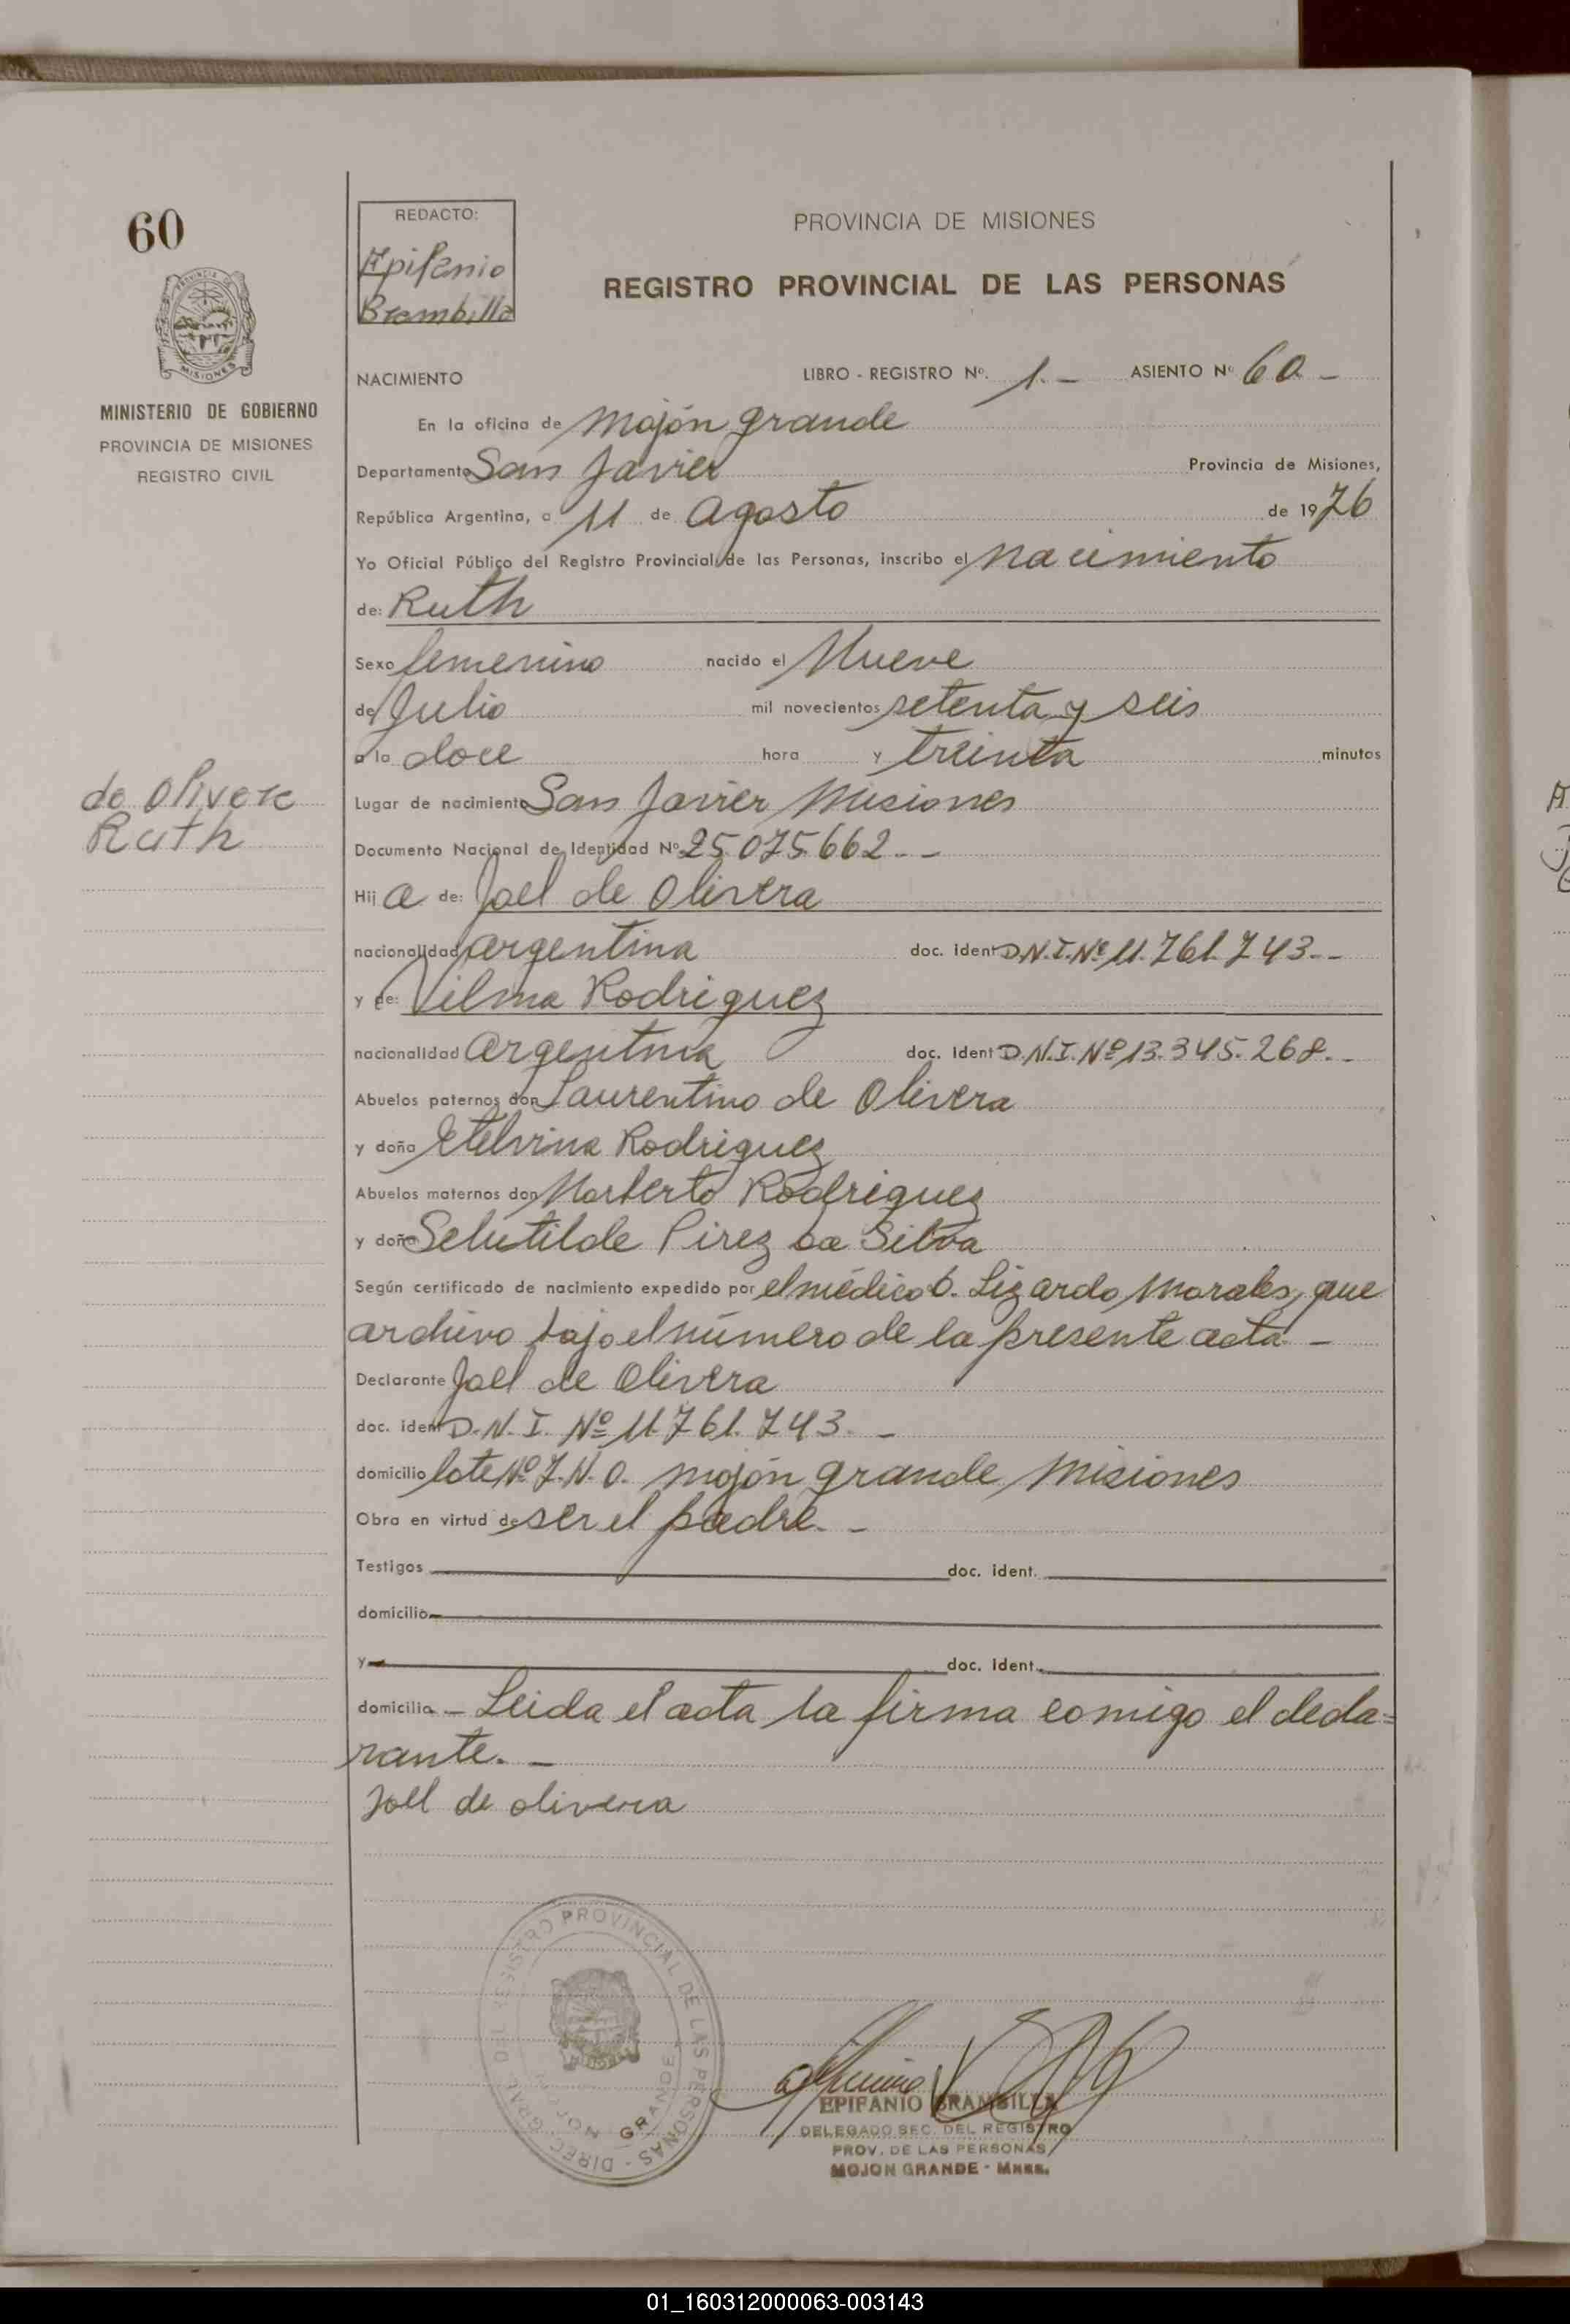 60
REDACTO:
Epifanio
Brambilla
PROVINCIA DE MISIONES
REGISTRO PROVINCIAL DE LAS PERSONAS
MISIONES
MINISTERIO DE GOBIERNO
PROVINCIA DE MISIONES
REGISTRO CIVIL
NACIMIENTO LIBRO - REGISTRO Nº. 1.- ASIENTO Nº 60-
En la oficina de Mojón grande
Departamento San Javier Provincia de Misiones,
República Argentina, a 11 de Agosto de 1976
Yo Oficial Público del Registro Provincial de las Personas, inscribo el nacimiento
de: Ruth
Sexo femenino nacido el Nueve
de Julio mil novecientos setenta y seis
a la doce hora y treinta minutos
de Olivera
Ruth
Lugar de nacimiento San Javier Misiones
Documento Nacional de Identidad Nº 25.075.662.--
Hij a de: Joel de Olivera
nacionalidad argentina doc. ident D.N.I.Nº 11.761.743.--
y de: Vilma Rodriguez
nacionalidad argentina doc. ident D.N.I.Nº 13.345.268.--
Abuelos paternos don Laurentino de Olivera
y doña Etelvina Rodriguez
Abuelos maternos don Norberto Rodriguez
y doña Selutilde Pirez da Silva
Según certificado de nacimiento expedido por el médico D. Lizardo Morales, que
archivo bajo el número de la presente acta -
Declarante Joel de Olivera
doc. ident D.N.I. Nº 11.761.743. -
domicilio lote Nº 7.N.O. mojón grande Misiones
Obra en virtud de ser el padre. -
Testigos doc. ident.
domicilio
y doc. ident.
domicilio - Leida el acta la firma comigo el decla=
rante. -
Joel de olivera
DIREC. GRAL DEL REGISTRO PROVINCIAL DE LAS PERSONAS
MOJON GRANDE
EPIFANIO BRAMBILLA
DELEGADO SEC. DEL REGISTRO
PROV. DE LAS PERSONAS
MOJON GRANDE - Mnes.
01_160312000063-003143